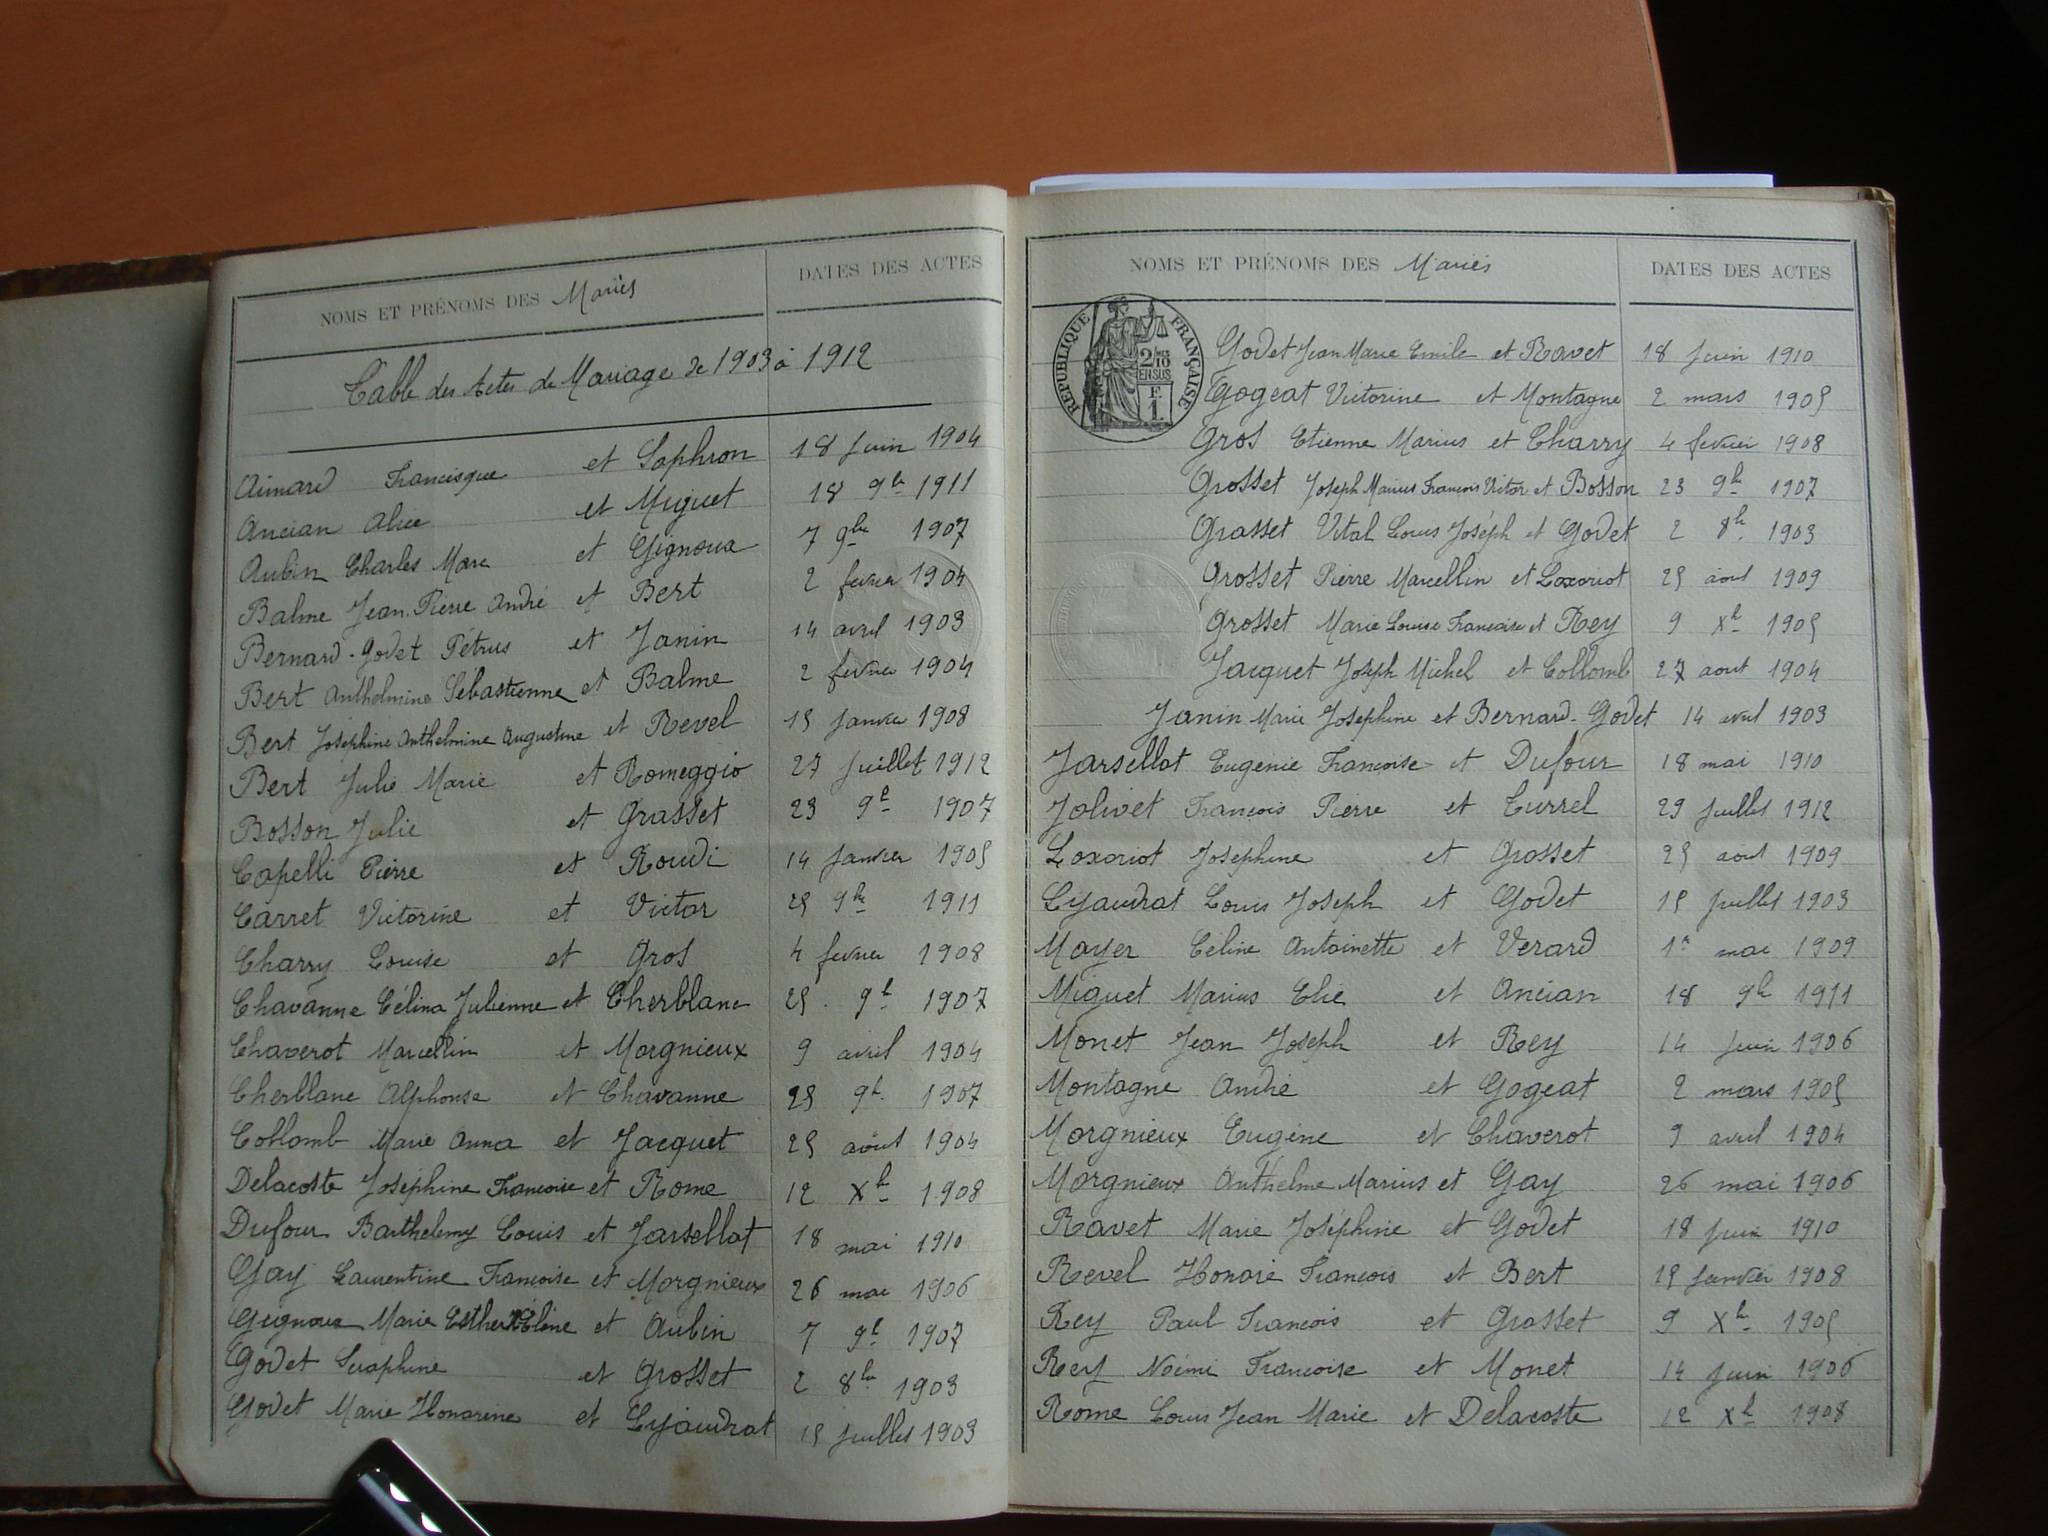 NOMS ET PRÉNOMS DES Mariés
DATES DES ACTES
Table des Actes de Mariage de 1903 à 1912
Aimard Francisque et Saphron 18 juin 1904
Ancian Alice et Miguet 18 9bre 1911
Aubin Charles Marc et Gignoux 7 9bre 1907
Balme Jean Pierre André et Bert 2 fevrier 1904
Bernard-Godet Pétrus et Janin 14 avril 1903
Bert Anthelmine Sébastienne et Balme 2 fevrier 1904
Bert Joséphine Anthelmine Augustine et Revel 15 janvier 1908
Bert Julie Marie et Romeggio 27 juillet 1912
Bosson Julie et Grasset 23 9b 1907
Capelli Pierre et Roudi 14 janvier 1905
Carret Victorine et Victor 25 9bre 1911
Charry Louise et Gros 4 fevrier 1908
Chavanne Célina Julienne et Cherblanc 25 9b 1907
Chaverot Marcellin et Morgnieux 9 avril 1904
Cherblanc Alphonse et Chavanne 25 9b 1907
Collomb Marie Anna et Jacquet 25 août 1904
Delacoste Joséphine Françoise et Rome 12 Xb 1908
Dufour Barthelemy Louis et Jarsellat 18 mai 1910
Gay Laurentine Françoise et Morgnieux 26 mai 1906
Gignoux Marie Esther Eléne et Aubin 7 9b 1907
Godet Séraphine et Grosset 2 8bre 1903
Godet Marie Honorine et Lyaudrat 15 juillet 1903
NOMS ET PRÉNOMS DES Mariés
DATES DES ACTES
RÉPUBLIQUE FRANÇAISE
2/10
EN SUS
F.
1
Godet Jean Marie Emile et Ravet 18 juin 1910
Gogeat Victorine et Montagne 2 mars 1905
Gros Etienne Marius et Charry 4 fevrier 1908
Grosset Joseph Marius François Victor et Bosson 23 9b 1907
Grasset Vital Louis Joséph et Godet 2 8b 1903
Grosset Pierre Marcellin et Loxoriot 25 août 1909
Grosset Marie Louise Françoise et Rey 9 Xb 1905
Jacquet Joseph Michel et Collomb 27 aout 1904
Janin Marie Josephine et Bernard-Godet 14 avril 1903
Jarsellat Eugénie Françoise et Dufour 18 mai 1910
Jolivet François Pierre et Turrel 29 juillet 1912
Loxoriot Josephine et Grosset 25 aout 1909
Lyaudrat Louis Joseph et Godet 15 juillet 1903
Mayer Céline Antoinette et Verard 1er mai 1909
Miguet Marius Elie et Ancian 18 9b 1911
Monet Jean Joseph et Rey 14 juin 1906
Montagne André et Gogeat 2 mars 1905
Morgnieux Eugène et Chaverot 9 avril 1904
Morgnieux Anthelme Marius et Gay 26 mai 1906
Ravet Marie Joséphine et Godet 18 juin 1910
Revel Honoré François et Bert 15 janvier 1908
Rey Paul François et Grasset 9 Xb 1905
Rey Noémi Françoise et Monet 14 juin 1906
Rome Louis Jean Marie et Delacoste 12 Xb 1908